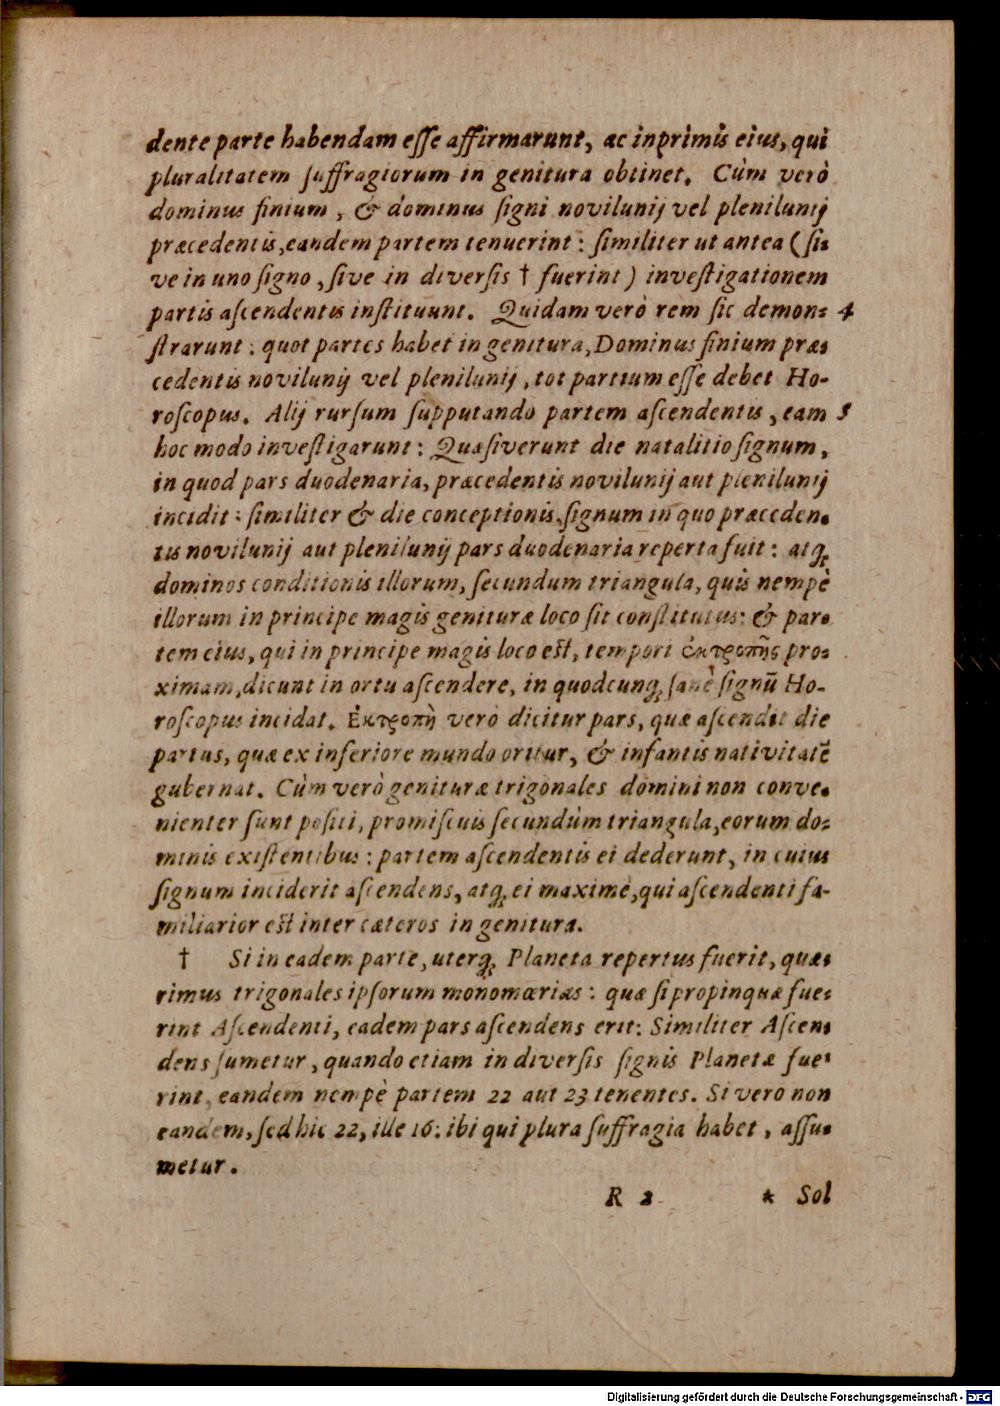 dente parte habendam eſſe affirmarunt, ac inprimis eius, qui
pluralitatem ſuffragiorum in genitura obtinet. Cùm verò
dominus finium, & dominus ſigni novilunij vel plenilunij
præcedentis, eandem partem tenuerint: ſimiliter ut antea (ſi-
ve in uno ſigno, ſive in diverſis † fuerint) inveſtigationem
partis aſcendentis inſtituunt. Quidam verò rem ſic demon- 4
ſtrarunt: quot partes habet in genitura, Dominus finium præ-
cedentis novilunij vel plenilunij, tot partium eſſe debet Ho-
roſcopus. Alij rurſum ſupputando partem aſcendentis, eam 5
hoc modo inveſtigarunt: Quæſiverunt die natalitio ſignum,
in quod pars duodenaria, præcedentis novilunij aut plenilunij
incidit: ſimiliter & die conceptionis, ſignum in quo præceden-
tis novilunij aut plenilunij pars duodenaria reperta fuit: atq;
dominos conditionis illorum, ſecundum triangula, quis nempè
illorum in principe magis genituræ loco ſit conſtitutus: & par-
tem eius, qui in principe magis loco est, tempori ἐκτροπῆς pro-
ximam, dicunt in ortu aſcendere, in quodcunq; ſanè ſignũ Ho-
roſcopus incidat. Ἐκτροπὴ vero dicitur pars, quæ aſcendit die
partus, quæ ex inferiore mundo oritur, & infantis nativitatẽ
gubernat. Cùm verò genituræ trigonales domini non conve-
nienter ſunt poſiti, promiſcuis ſecundùm triangula, eorum do-
minis exiſtentibus: partem aſcendentis ei dederunt, in cuius
ſignum inciderit aſcendens, atq; ei maximè, qui aſcendenti fa-
miliarior est inter cæteros in genitura.
† Si in eadem parte, uterq; Planeta repertus fuerit, quæ-
rimus trigonales ipſorum monomœrias: quæ ſi propinquæ fue-
rint Aſcendenti, eadem pars aſcendens erit: Similiter Aſcen-
dens ſumetur, quando etiam in diverſis ſignis Planetæ fue-
rint, eandem nempè partem 22 aut 23 tenentes. Si vero non
eandem, ſed hic 22, ille 16: ibi qui plura ſuffragia habet, aſſu-
metur.
R 2 * Sol
Digitalisierung gefördert durch die Deutsche Forschungsgemeinschaft - DFG